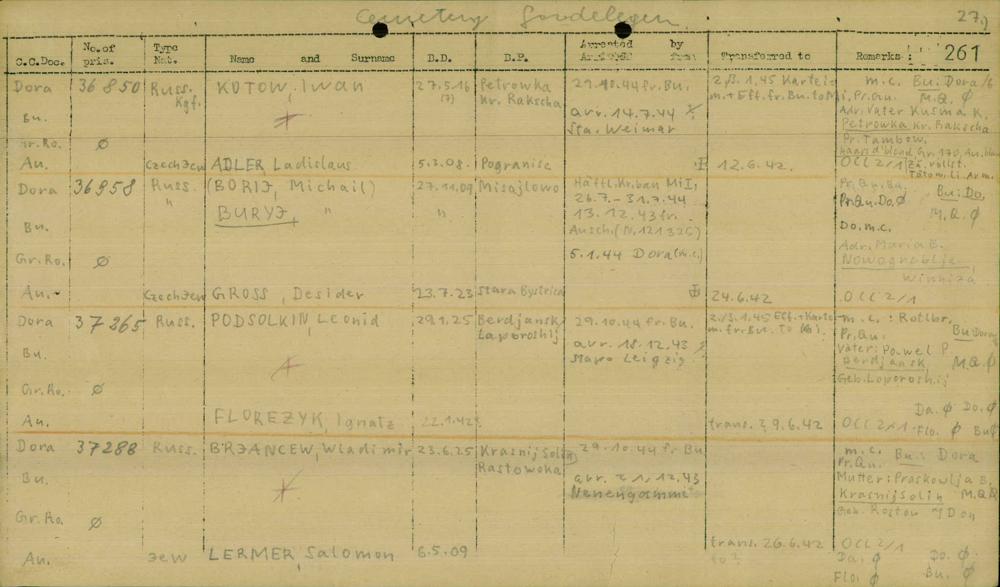 Cemetery Gardelegen
27.)
C.C.Doc. No. of pris. Type Nat. Name and Surname D.D. D.P. Arrested by Transferred to Remarks 261
Dora 36850 Russ. KOTOW, Iwan 27.5.16 Petrowka 29.10.44 fr. Bu. 2./3.1.45 m.c. Bu: Dora
Kgf. (?) Kr. Rakscha m.+Eff.fr.Bu.to Pr.Qu. M.Q. Ø
Bu. arr. 14.7.44 Adr. Vater Kusma K.
Sta. Weimar Petrowka Kr. Rakscha
Gr.Ro. Ø Pr. Tambow,
Au. Czech Jew ADLER Ladislaus 5.2.08. Pogranise 12.6.42. OCC 2/1
Dora 36958 Russ. (BORIJ, Michail) 27.11.09 Misajlowo Häftl.Kr.bau MiI, Pr.Qu.Bu.
" BURYJ, " " 26.7.-31.7.44 Pr.Qu.Do. Ø Bu: Do,
13.12.43 fr. M.Q. Ø
Bu. Ausch. (N.121325) Do. m.c.
Adr. Maria B.
Gr.Ro. Ø 5.1.44 Dora (m.c.) Nowogreblja,
Winniza
Au. Czech Jew GROSS, Desider 23.7.23 Stara Bystrica 24.6.42 OCC 2/1
Dora 37265 Russ. PODSOLKIN, Leonid 29.1.25 Berdjansk 29.10.44 fr. Bu. 2./3.1.45 Eff.+Karte m.c.: Rottbr.
Saporoshij m. fr. Bu. to Pr.Qu: Bu: Dora
Bu. arr. 18.12.43 Vater: Pawel P.
Stapo Leipzig Berdjansk M.Q. Ø
Gr.Ro. Ø Geb. Saporoshij
Da. Ø Do. Ø
Au. FLOREZYK, Ignatz 22.1.42 trans. ? 9.6.42 OCC 2/1 Flo. Ø Bu Ø
Dora 37288 Russ. BRJANCEW, Wladimir 23.6.25 Krasnij Solin 29.10.44 fr. Bu m.c. Bu: Dora
Rastowska Pr.Qu.
Bu. arr. 21.12.43 Mutter: Praskowlja B.
Nenengamme Krasnij Solin M.Q. Ø
Gr.Ro. Ø Geb. Rostow / Don
Au. Jew LERMER, Salomon 6.5.09 trans. 26.6.42 OCC 2/1
to? Da. Ø Do. Ø
Flo. Ø Bu. Ø